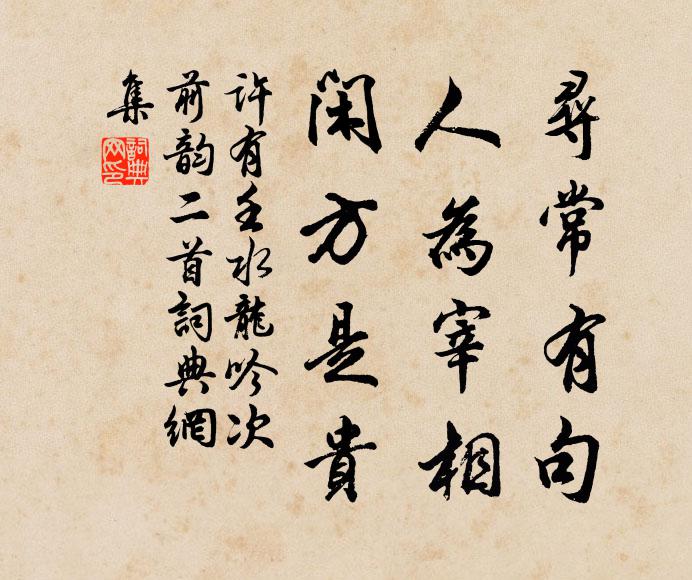 尋常有句
人為宰相
閑方是貴
許有壬水龍吟次
前韵二首詞典網
集
詞典網印